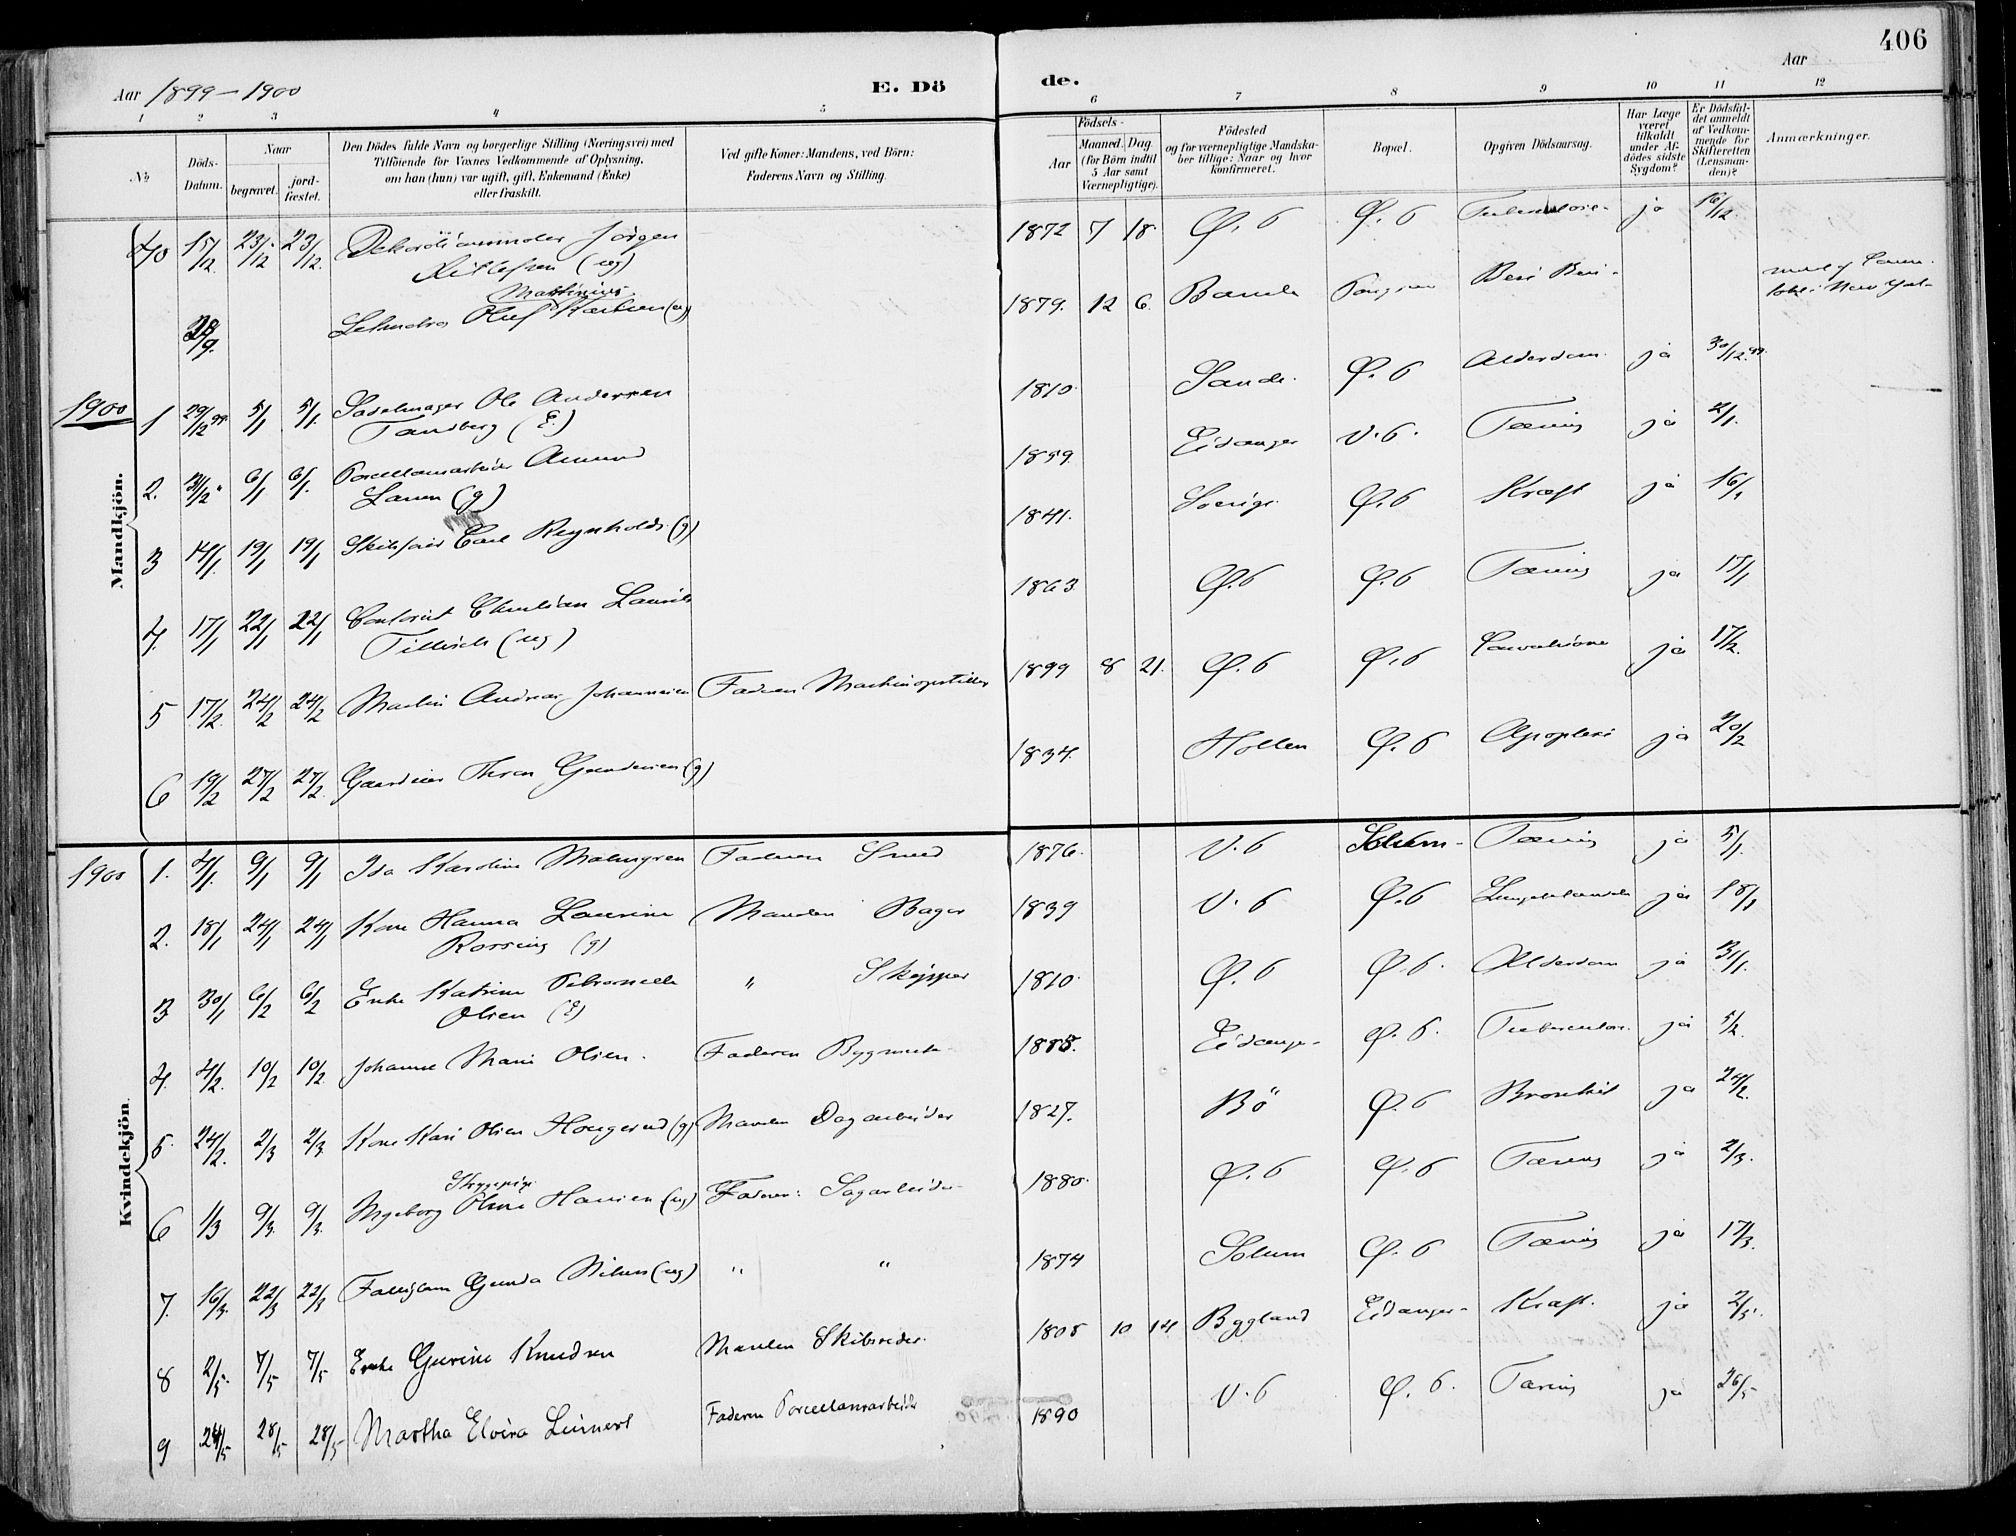 406
Aar 1899-1900
E. Dö
de.
Aar
1 2 3 4 5 6 7 8 9 10 11 12
No
Döds-Datum.
Naar
begravet.
jord-fæstet.
Den Dödes fulde Navn og borgerlige Stilling (Næringsvei) med
Tilföiende for Voxnes Vedkommende af Oplysning,
om han (hun) var ugift, gift, Enkemand (Enke)
eller fraskilt.
Ved gifte Koner: Mandens, ved Börn:
Faderens Navn og Stilling.
Födsels-
Aar
Maaned. Dag
(for Börn indtil
5 Aar samt
Værnepligtige).
Födested
og for værnepligtige Mandska-
ber tillige: Naar og hvor
konfirmeret.
Bopæl.
Opgiven Dödsaarsag.
Har Læge
været
tilkaldt
under Af-
dödes sidste
Sygdom?
Er Dödsfal-
det anmeldt
af Vedkom-
mende for
Skifteretten
(Lensman-
den)?
Anmærkninger.
Mandkjön.
40 15/12 23/12 23/12 Jörgen Ditlefsen (ug) 1872 7 18 Ø. 6 Ø. 6 ja 16/12
Mathinius
Oluf (ug) 1879. 12 6 Bamle Beri Beri
1900
1 29/12 99 5/1 5/1 Sadelmager Ole Andersen
Tandberg (E) 1810 Sande Ø. 6 Alderdom ja 30/12 99
2. 31/12 " 6/1 6/1 Porcellansarbeider Amund
Larsen (g) 1859 Eidanger V. 6 Tæring ja 2/1
3 14/1 19/1 19/1 Carl Reynholds (g) 1841. Sverige Ø. 6 Kræft ja 16/1
4. 17/1 22/1 22/1 Contorist Christian Laurits
Tillisch (ug) 1863 Ø. 6 Ø. 6 Tæring ja 17/1
5 17/2 24/2 24/2 Martin Andreas Johannesen Faderen Maskinopsitter 1899 8 21. Ø. 6 Ø. 6 ja 17/2
6 19/2 27/2 27/2 Gundersen (g) 1834. Hollen Ø. 6 Apoplexi ja 20/2
Kvindekjön.
1900 1. 4/1 9/1 9/1 Ida Karoline Malmgren Faderen Smed 1876. V. 6 Solum Tæring ja 5/1
2. 18/1 24/1 24/1 Kone Hanna Laurine
Rossing (g) Manden Bager 1839 V. 6 Ø. 6 ja 18/1
3 30/1 6/2 6/2 Enke Katrine Petronelle
Olsen (E) " Skipper 1810 Ø. 6 Ø. 6. Alderdom ja 31/1
4. 4/2 10/2 10/2 Johanne Marie Olsen. Faderen Bygmester 1888. Eidanger Ø. 6. Tuberculose ja 5/2
5. 24/2 2/3 2/3 Kone Kari Olsen Haugerud (g) Manden Dagarbeider 1827. Bö Ø. 6 Bronkit ja 24/2
Strygepige
6 1/3 9/3 9/3 Ingeborg Oline Hansen (ug) Faderen: Sagarbeider 1880. Ø. 6 Ø. 6 Tæring ja 2/3
7. 16/3 22/3 22/3 Fattiglem Gunda Nilsen (ug) " " 1874 Solum Ø. 6 Tæring ja 17/3
8 2/5 7/5 7/5 Enke Gurine Knudsen Manden Skibsreder 1805 10 14 Bygland Eidanger Kræft. ja 2/5
9 24/5 28/5 28/5 Martha Elvira Leinert Faderen Porcellansarbeider 1890 V. 6 Ø. 6. Tæring ja 26/5